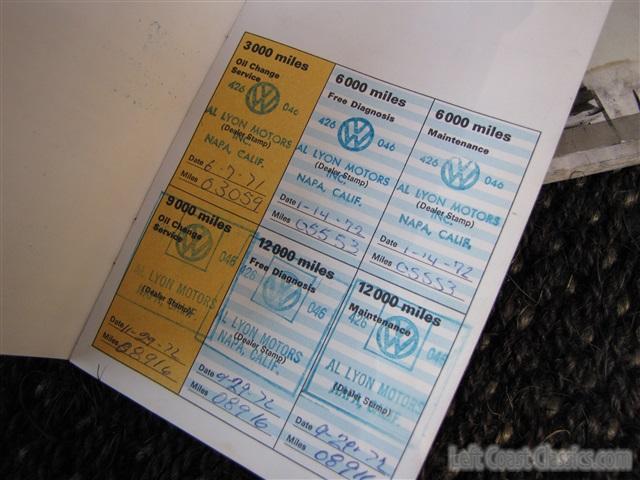 3000 miles
Oil Change
Service
426 046
AL LYON MOTORS
(Dealer Stamp)
INC.
NAPA, CALIF.
Date 6-7-71
Miles 03059
6000 miles
Free Diagnosis
426 046
AL LYON MOTORS
(Dealer Stamp)
INC.
NAPA, CALIF.
Date 1-14-72
Miles 05553
6000 miles
Maintenance
426 046
AL LYON MOTORS
(Dealer Stamp)
INC.
NAPA, CALIF.
Date 1-14-72
Miles 05553
9000 miles
Oil Change
Service
046
AL LYON MOTORS
(Dealer Stamp)
Date
Miles 08916
12000 miles
Free Diagnosis
426 046
AL LYON MOTORS
(Dealer Stamp)
NAPA, CALIF.
Date
Miles 08916
12000 miles
Maintenance
426
AL LYON MOTORS
(Dealer Stamp)
NAPA, CALIF.
Date
Miles 08916
Left Coast Classics.com